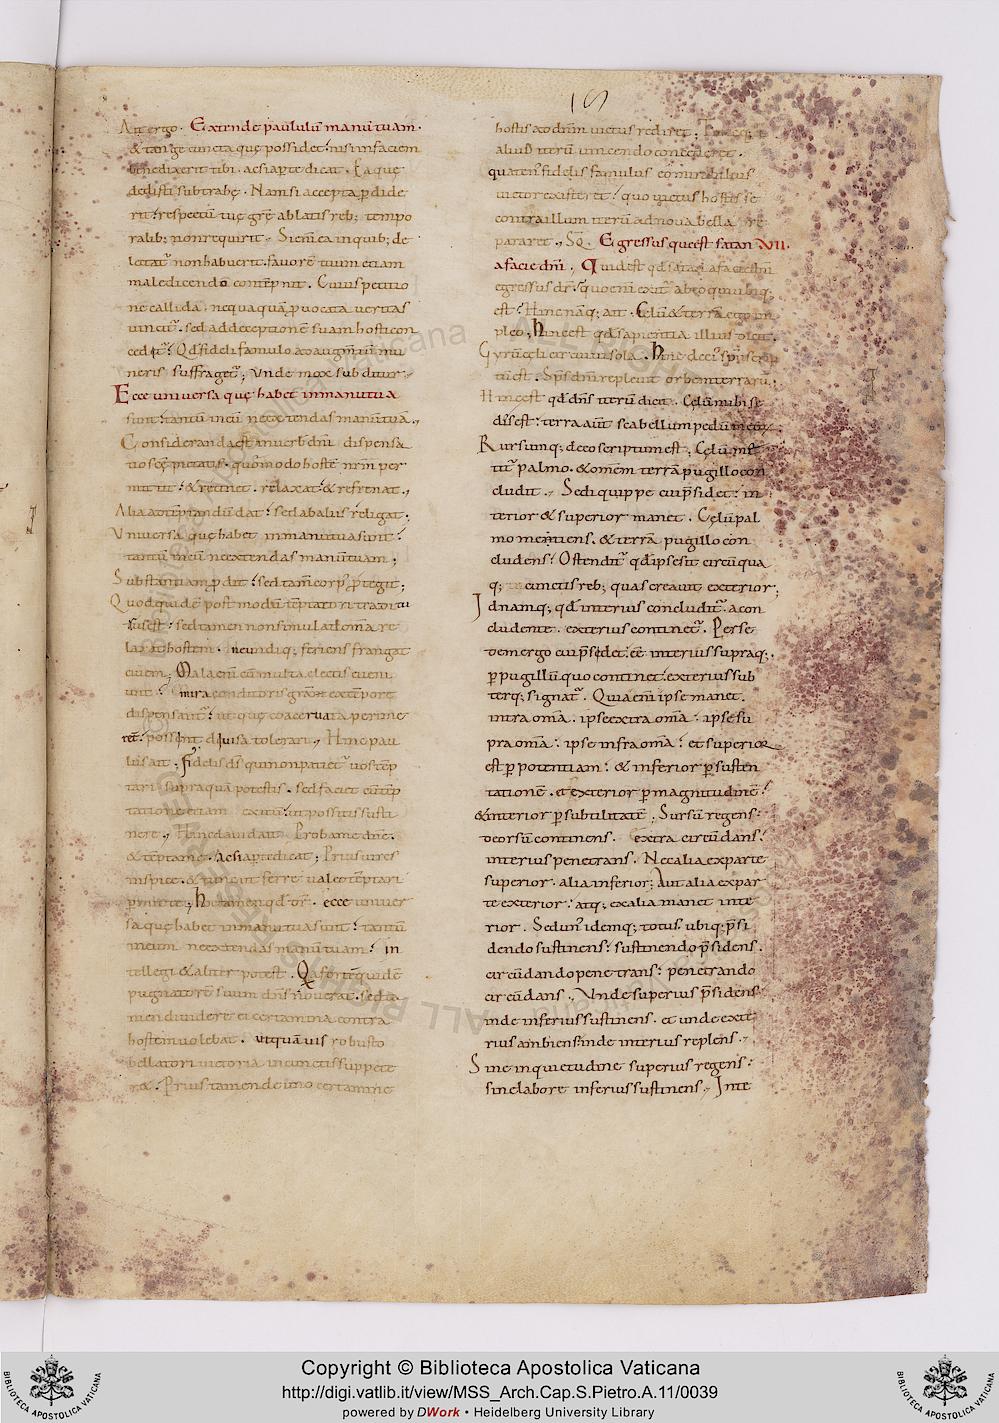 Ait ergo. Extende paululū manū tuam.
& tange cuncta quę possidet. nisi in faciem
benedixerit tibi. ac si apte dicat. Ea quę
dedisti subtrahe. Nam si accepta pdide
rit. respectū tuę grę ablatis reb; tempo
ralib; non requirit. Si enī ea in quib; de
lectat non habuerit. favorē tuum etiam
maledicendo contēpnit. Cuius petitio
ne callida. nequaquā puocata veritas
vincit. sed ad deceptionē suam hosti con
cedit. qd fideli famulo ad augmtū mu
neris suffraget; Unde mox subditur.
Ecce universa quę habet in manu tua
sunt. tantū in eū ne extendas manū tuā.
Consideranda est in verb dnī dispensa
tio scę pietatis. quomodo hostē nrm per
mittit & retinet. relaxat & refrenat.
Alia ad tēptandū dat. sed ab aliis religat.
Universa quę habet in manu tua sunt.
tantū in eū ne extendas manū tuam;
Substantiam pdit. sed tam corp ptegit;
Quod quidē post modū tēptatori traditu
rus est. sed tamen non simul ad omā re
laxat hostem. ne undiq; feriens frangat
civem. Mala enī cū multa electis eveni
unt. mira conditoris gra ex tempore
dispensant. ut quę coacervata perime
rent. possint divisa tolerari. Hinc pau
lus ait; Fidelis ds qui non patiet vos tēp
tari supra quā potestis. sed faciet cū tēp
tatione etiam exitū. ut possitis susti
nere. Hinc david ait. Proba me dnē.
& tēpta me. Ac si apte dicat; Prius vires
inspice. & tunc ut ferre valeo tēptari
pmitte; Hoc tamen qd dr. ecce univer
sa quę habet in manu tua sunt. tantū
in eum ne extendas manū tuam. in
tellegi & aliter potest. Quia fortē quidē
pugnatorē suum dns noverat. sed ta
men dividere ei certamina contra
hostem volebat. ut quā vis robusto
bellatori victoria in cunctis suppete
ret. Prius tamen de uno certamine
19
hostis ad dnm victus rediret.
aliud iterū vincendo concederet.
quaten fidelis famulus eo mirabilius
victor existeret. quo victus hostis se
contra illum iterū ad nova bella re
pararet. Sq. Egressus que est satan VII.
a facie dnī. Quid est qd satan a facie dnī
egressus dr. quo enī exit ab eo qui ubiq;
est. Hinc nāq; ait. Celū & terrā ego im
pleo. hinc est qd sapientia illius dicit.
Gyrū cęli circuivi sola. hinc de ei spū scrip
tū est. Sps dnī replevit orbem terrarū;
Hinc est qd dns iterū dicit. Cęlū mihi se
des est. terra aut scabellum pedū meoʒ.
Rursumq; de eo scriptum est. Cęlū me
tit palmo. & omem terrā pugillo con
cludit. Sedi quippe cui psidet. in
terior & superior manet. Cęlū pal
mo metiens. & terrā pugillo con
cludens. Ostendit qd ipse sit circū qua
q; cunctis reb; quas creavit exterior;
Id namq; qd interius concludit. a con
cludente exterius continet. Per se
dem ergo cui psidet. eē interius supraq;.
p pugillū quo continet exterius sub
terq; signat. Quia enī ipse manet
intra omā. ipse extra omā. ipse su
pra omā. ipse infra omā. et superior
est p potentiam. & inferior p susten
tationē. et exterior p magnitudinē.
& interior p subtilitatē. Sursū regens.
deorsū continens. extra circūdans.
interius penetrans. Nec alia ex parte
superior. alia inferior; Aut alia expar
te exterior. atq; ex alia manet inte
rior. Sed un idemq; totus ubiq; psi
dendo sustinens. sustinendo psidens.
circūdando penetrans. penetrando
circūdans. Unde superius psidens.
inde inferius sustinens. et unde exte
rius ambiens. inde interius replens.
Sine inquietudine superius regens.
sine labore inferius sustinens. Inte
Copyright © Biblioteca Apostolica Vaticana
http://digi.vatlib.it/view/MSS_Arch.Cap.S.Pietro.A.11/0039
powered by DWork • Heidelberg University Library